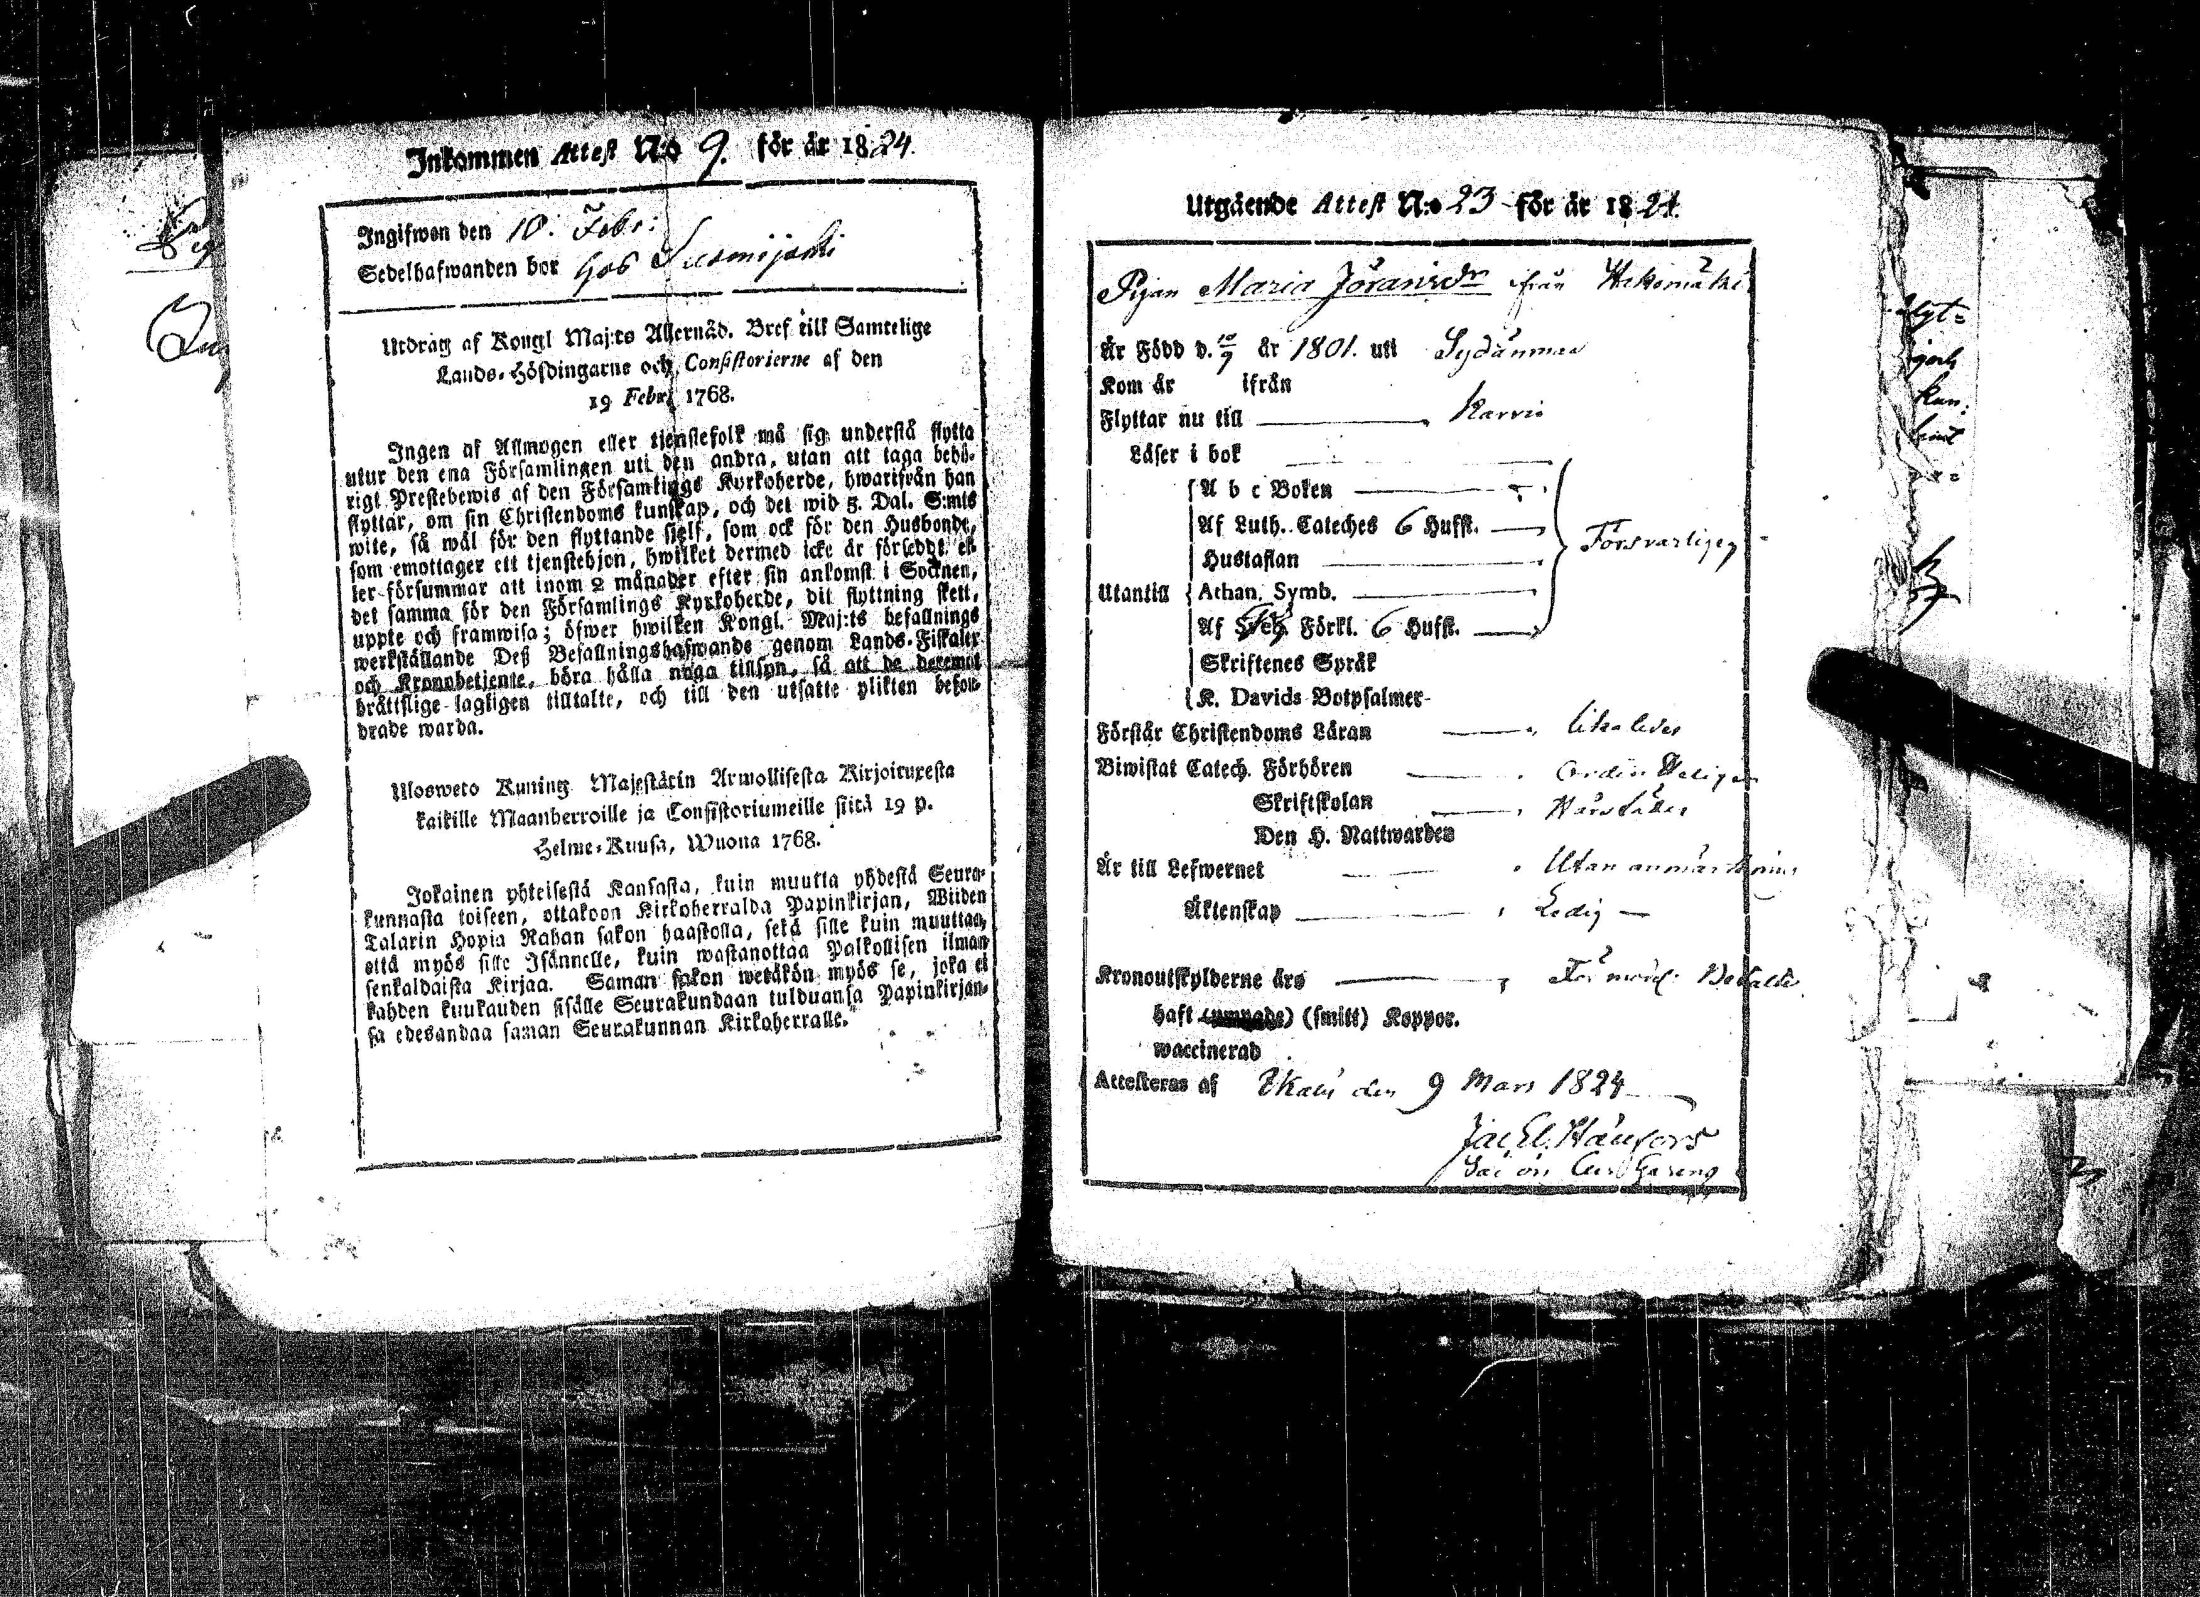 Inkommen Attest N:o 9. för år 1824.
Ingifwen den 10. Febr:
Sedelhafwanden bor hos
Utdrag af Kongl Maj:ts Allernåd. Bref till Samtelige
Lands-Höfdingarne och Consistorierne af den
19 Febr. 1768.
Ingen af Allmogen eller tjenstefolk må sig understå flytta
utur den ena Församlingen uti den andra, utan att taga behö-
rigt Prestebewis af den Församlings Kyrkoherde, hwarifrån han
flyttar, om sin Christendoms kunskap, och det wid 5. Dal. S:mts
wite, så wäl för den flyttande sjelf, som ock för den Husbonde,
som emottager ett tjenstehjon, hwilket dermed icke är försedt, el-
ler försummar att inom 2 månader efter sin ankomst i Socknen,
det samma för den Församlings Kyrkoherde, dit flyttning skett,
uppte och framwisa; öfwer hwilken Kongl. Maj:ts befallnings
werkställande Deß Befallningshafwande genom Lands-Fiskaler
och Kronobetjente, böra hålla noga tillsyn, så att de deremot
bråttslige lagligen tilltalte, och till den utsatte plikten befor-
drade warda.
Ulosweto Kuning Majestätin Armollisesta Kirjoituxesta
kaikille Maanherroille ja Consistoriumeille siitä 19 p.
Helme-Kuusa, Wuona 1768.
Jokainen yhteisestä Kansasta, kuin muutta yhdestä Seura-
kunnasta toiseen, ottakoon Kirkoherralda Papinkirjan, Wiiden
Talarin Hopia Rahan sakon haastolla, sekä sille kuin muuttaa,
että myös sille Isännelle, kuin wastanottaa Palkollisen ilman
senkaldaista Kirjaa. Saman sakon wetäkön myös se, joka ei
kahden kuukauden sisälle Seurakundaan tulduansa Papinkirjan-
sa edesandaa saman Seurakunnan Kirkoherralle.
Utgående Attest N:o 23 för år 1824.
Pigan Maria Jöransdr från
Är Född d. 10/9 år 1801. uti Sydänmaa
Kom år ifrån
Flyttar nu till Karvia
Läser i bok
A b c Boken
Af Luth. Cateches 6 Hufst.
Hustaflan
Utantill Athan. Symb.
Af Förkl. 6 Hufst.
Försvarligen
Skriftenes Språk
K. Davids Botpsalmer
Förstår Christendoms Läran lika ledes
Biwistat Catech. Förhören
Skriftskolan
Den H. Nattwarden
Är till Lefwernet Utan anmärkning
Äktenskap Ledig
Kronoutskylderne års Förmod. Betalde
haft (smitt) Koppor.
waccinerad
Attesteras af Ikalis den 9 Mars 1824